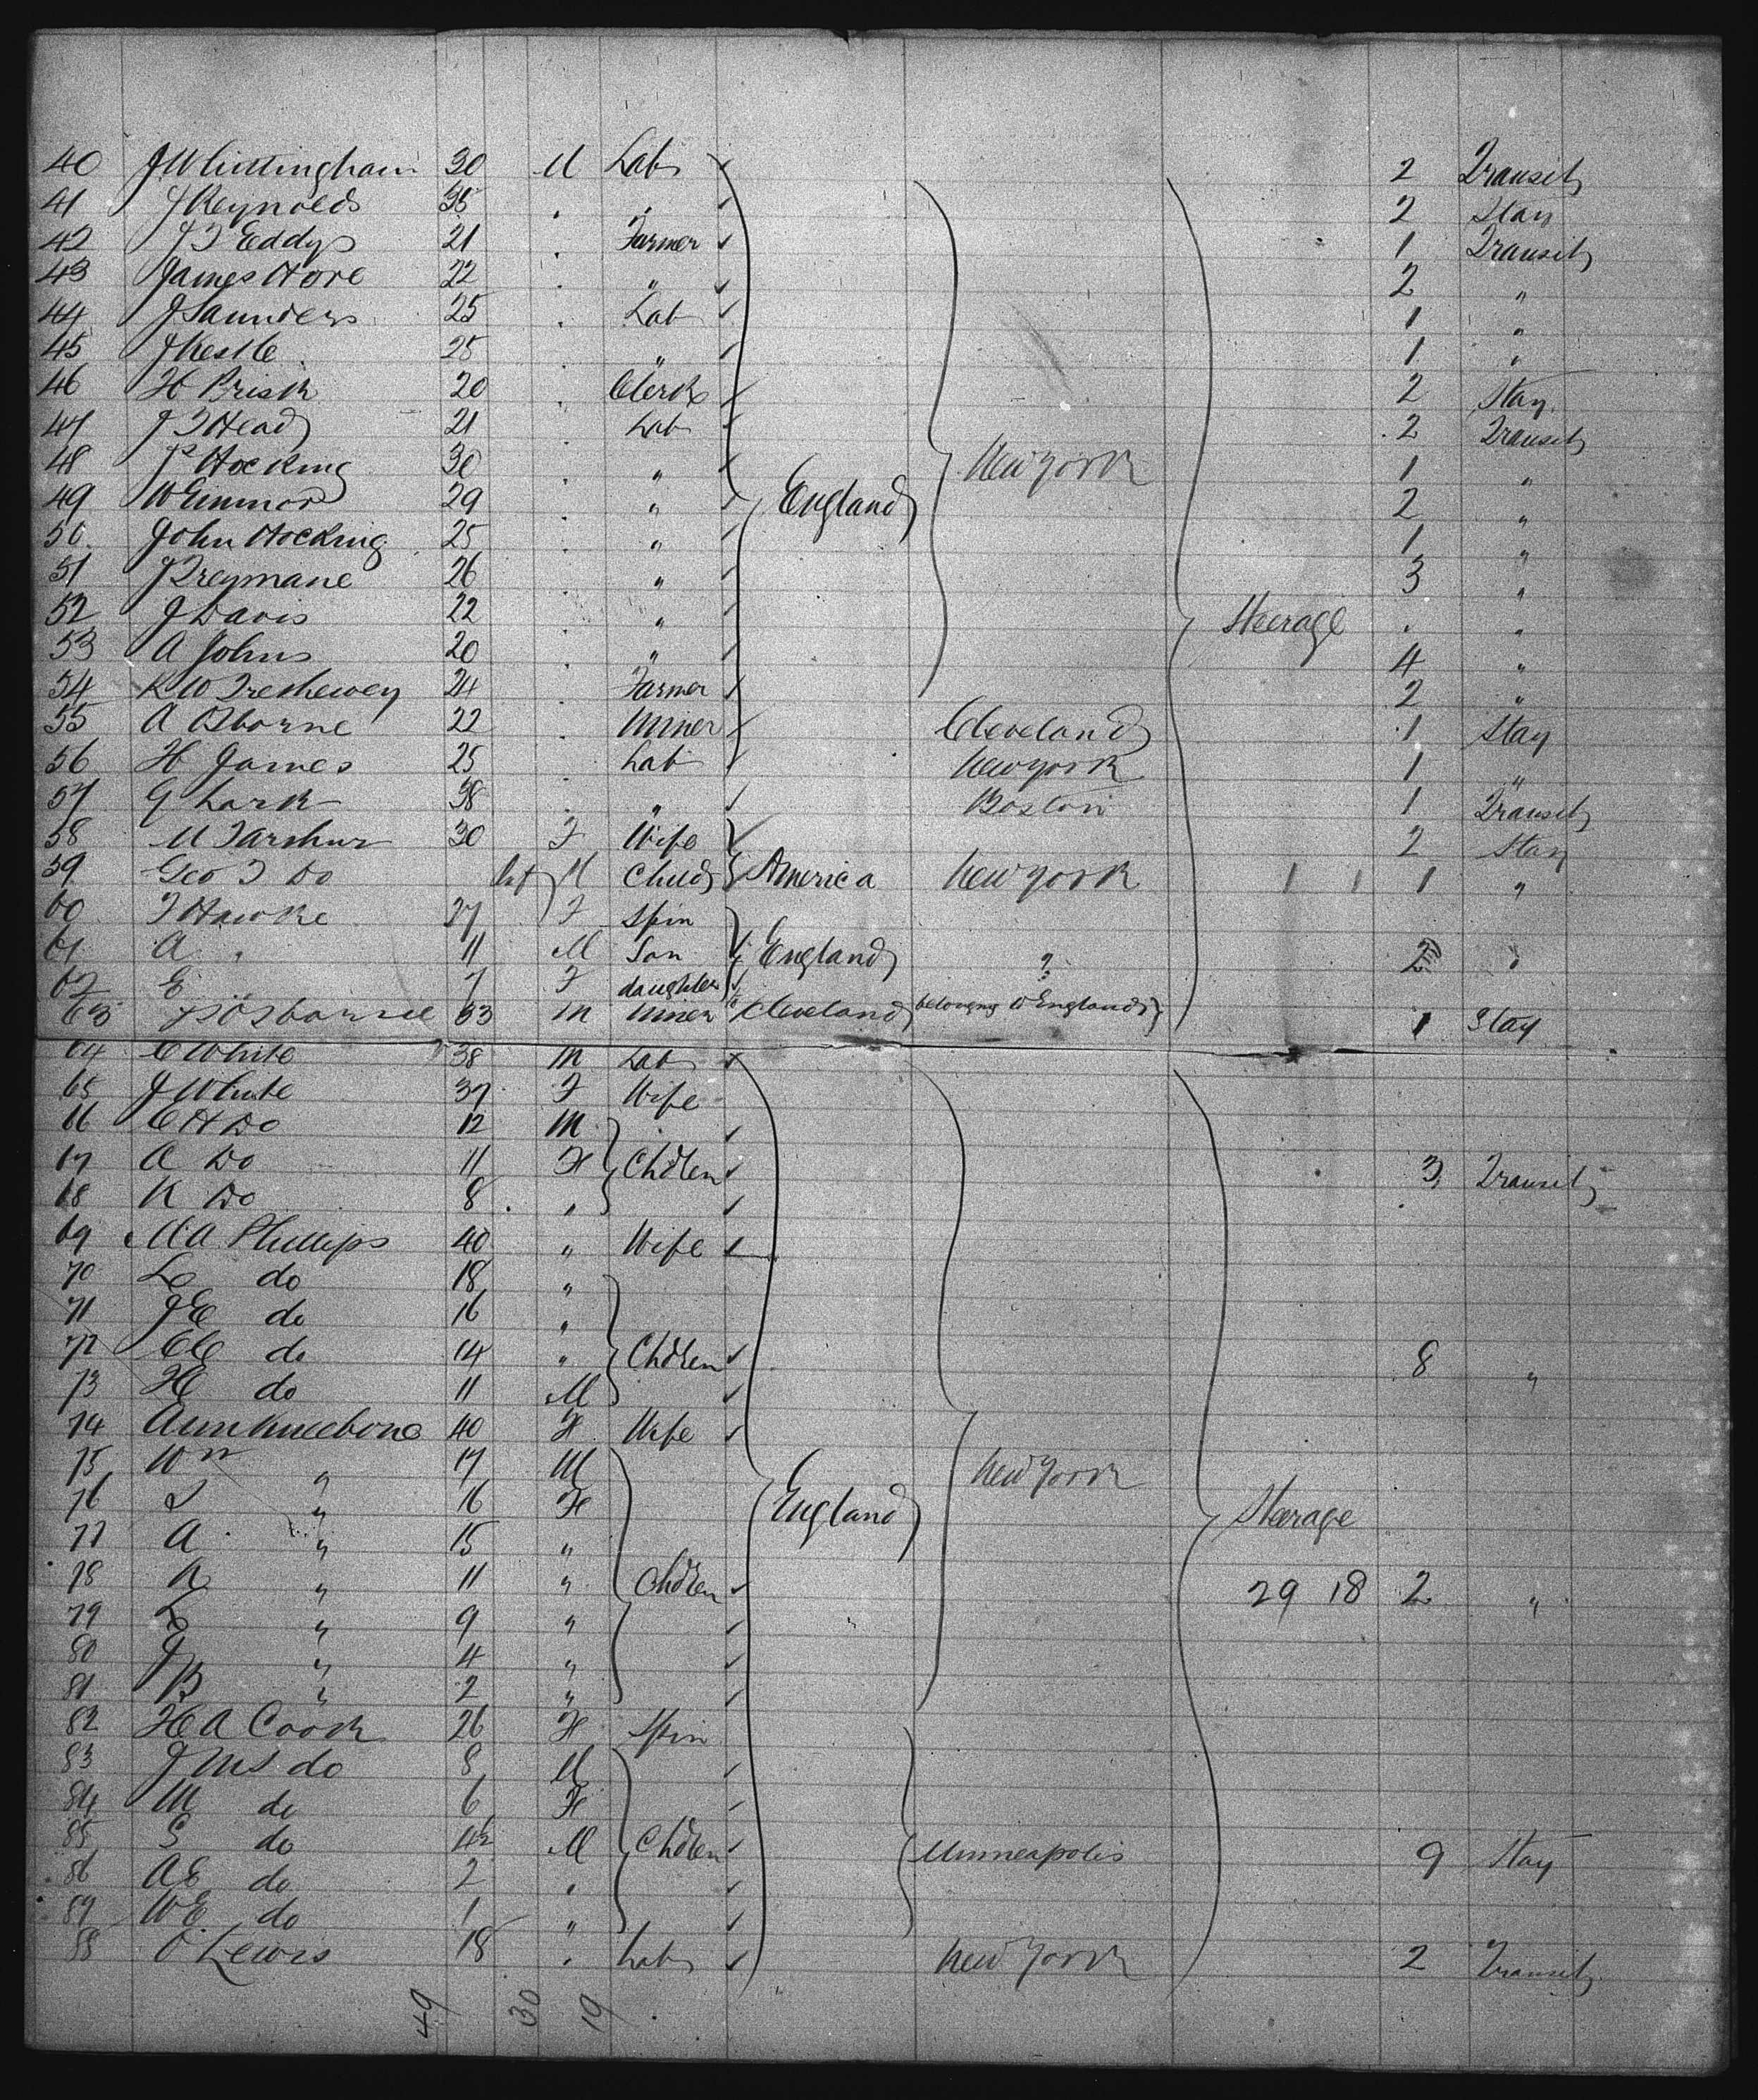 40 J Whittingham 30 M Lab 2 Transit
41 J Reynolds 35 " " 2 Stay
42 J T Eddy 21 " Farmer 1 Transit
43 James Hore 22 " " 2 "
44 J Saunders 25 " Lab 1 "
45 J Kestle 25 " " 1 "
46 H Prisk 20 " Clerk 2 Stay
47 J T Head 21 " Lab 2 Transit
48 P Hocking 30 " " New York 1 "
49 W 29 " " England 2 "
50 John Hocking 25 " " 1 "
51 J Treymane 26 " " 3 "
52 J Davis 22 " " Steerage . "
53 A Johns 20 " " 4 "
54 R W Trethewey 24 Farmer 2 "
55 A Osborne 22 " Miner Cleveland 1 Stay
56 H James 25 " Lab New York 1 "
57 G Lark 38 " " Boston 1 Transit
58 M Tarshur 30 F Wife 2 Stay
59 Geo T Do Inf M Child America New York 1 1 1 "
60 T Hawke 27 F Spin
61 A " 11 M Son England " 2 "
62 E " 7 F daughter
63 J Osborne 33 M Miner Cleveland belongs to England 1 Stay
64 C White 38 M Lab
65 J White 37 F Wife
66 C H Do 12 M
67 A Do 11 F Chdren 3 Transit
68 K Do 8 "
69 M A Phillips 40 " Wife
70 L do 18 "
71 J E do 16 "
72 C C do 14 " Chdren 8 "
73 H do 11 M
74 Ann Kneebone 40 F Wife
75 Wm " 17 M New York
76 L " 16 F England Steerage
77 A " 15 "
78 K " 11 " Chdren 29 18 2 "
79 L " 9 "
80 J " 4 "
81 B " 2 "
82 H A Cook 26 F Spin
83 J M S do 8 M
84 M do 6 F
85 S do 4½ M Chdren Minneapolis 9 Stay
86 A E do 2 "
87 W E do 1 "
88 O Lewis 18 " Lab New York 2 Transit
49 30 19